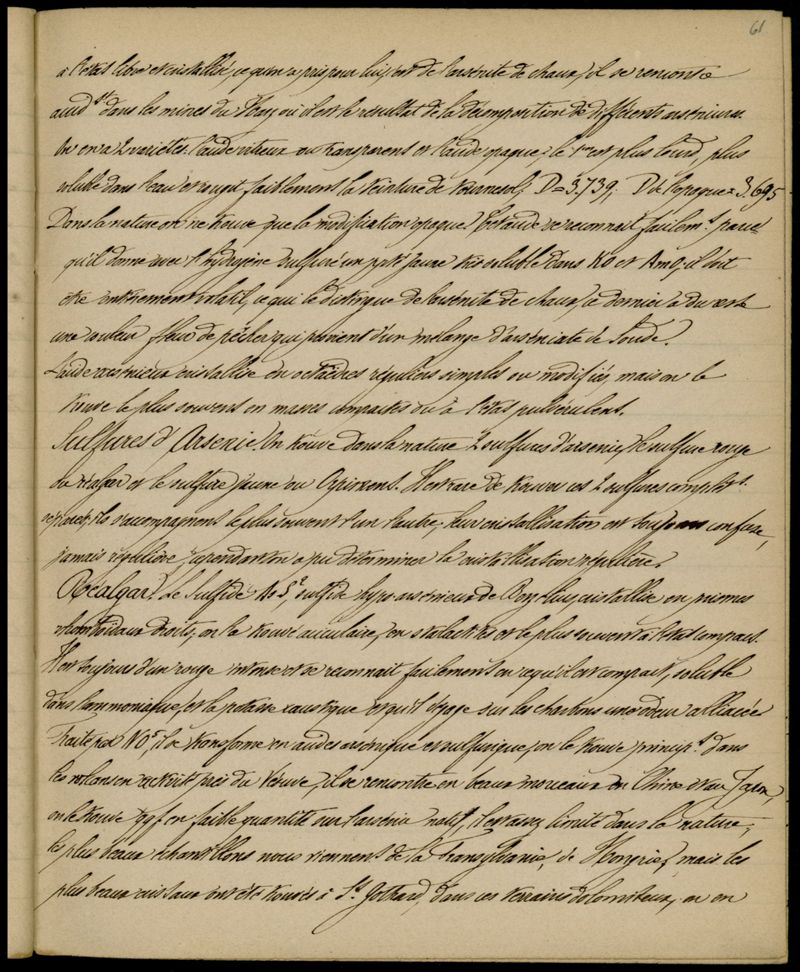 61
à l'état libre et cristallisé, ce qu'on a pris pour lui, est de l'arsénite de chaux, il se rencontre
aud st dans les mines du Harz où il est le résultat de la décomposition de différents arséniures.
On en a 2 variétés. l'acide vitreux ou transparent et l'acide opaque; le 1er est plus lourd, plus
soluble dans l'eau et rougit faiblement la teinture de tournesol; D = 3,739; D de l'opaque = 3,695
Dans la nature on ne trouve que la modification opaque. Cet acide se reconnait facilemt parce
qu'il donne avec l'hydrogène sulfuré un pté jaune très soluble dans KO et AmO; il doit
être entièrement volatil, ce qui le distingue de l'arsénite de chaux, ce dernier a du reste
une couleur fleur de pêcher qui provient d'un mélange d'arséniate de Soude.
L'acide arsénieux cristallise en octaèdres réguliers simples ou modifiés, mais on le
trouve le plus souvent en masses compactes ou à l'état pulvérulent.
Sulfures d'Arsenic. On trouve dans la nature 2 sulfures d'arsenic, le sulfure rouge
ou réalgar et le sulfure jaune ou Orpiment. Il est rare de trouver ces 2 sulfures complt
séparés, ils s'accompagnent le plus souvent l'un l'autre; leur cristallisation est toujours confuse,
jamais régulière, cependant on a pu déterminer la cristallisation régulière.
Réalgar. Le Sulfide As S2 sulfide hypo-arsénieux de Berzelius, cristallise en prismes
rhomboidaux droits, on le trouve aciculaire, en stalactites et le plus souvent à l'état compact.
Il est toujours d'un rouge intense et se reconnait facilement en ce qu'il est compact, soluble
dans l'ammoniaque, et la potasse caustique et qu'il dégage sur les charbons une odeur alliacée
Traité par NO5, il se transforme en acides arsénique et sulfurique, on le trouve principt dans
les volcans en activité près du Vésuve, il se rencontre en beaux morceaux en Chine et au Japon,
on le trouve qqf en faible quantité sur l'arsenic natif, il est assez limité dans la nature;
les plus beaux échantillons nous viennent de la Transylvanie, de Hongrie, mais les
plus beaux cristaux ont été trouvés à St Gothard, dans ces terrains dolomiteux, on en